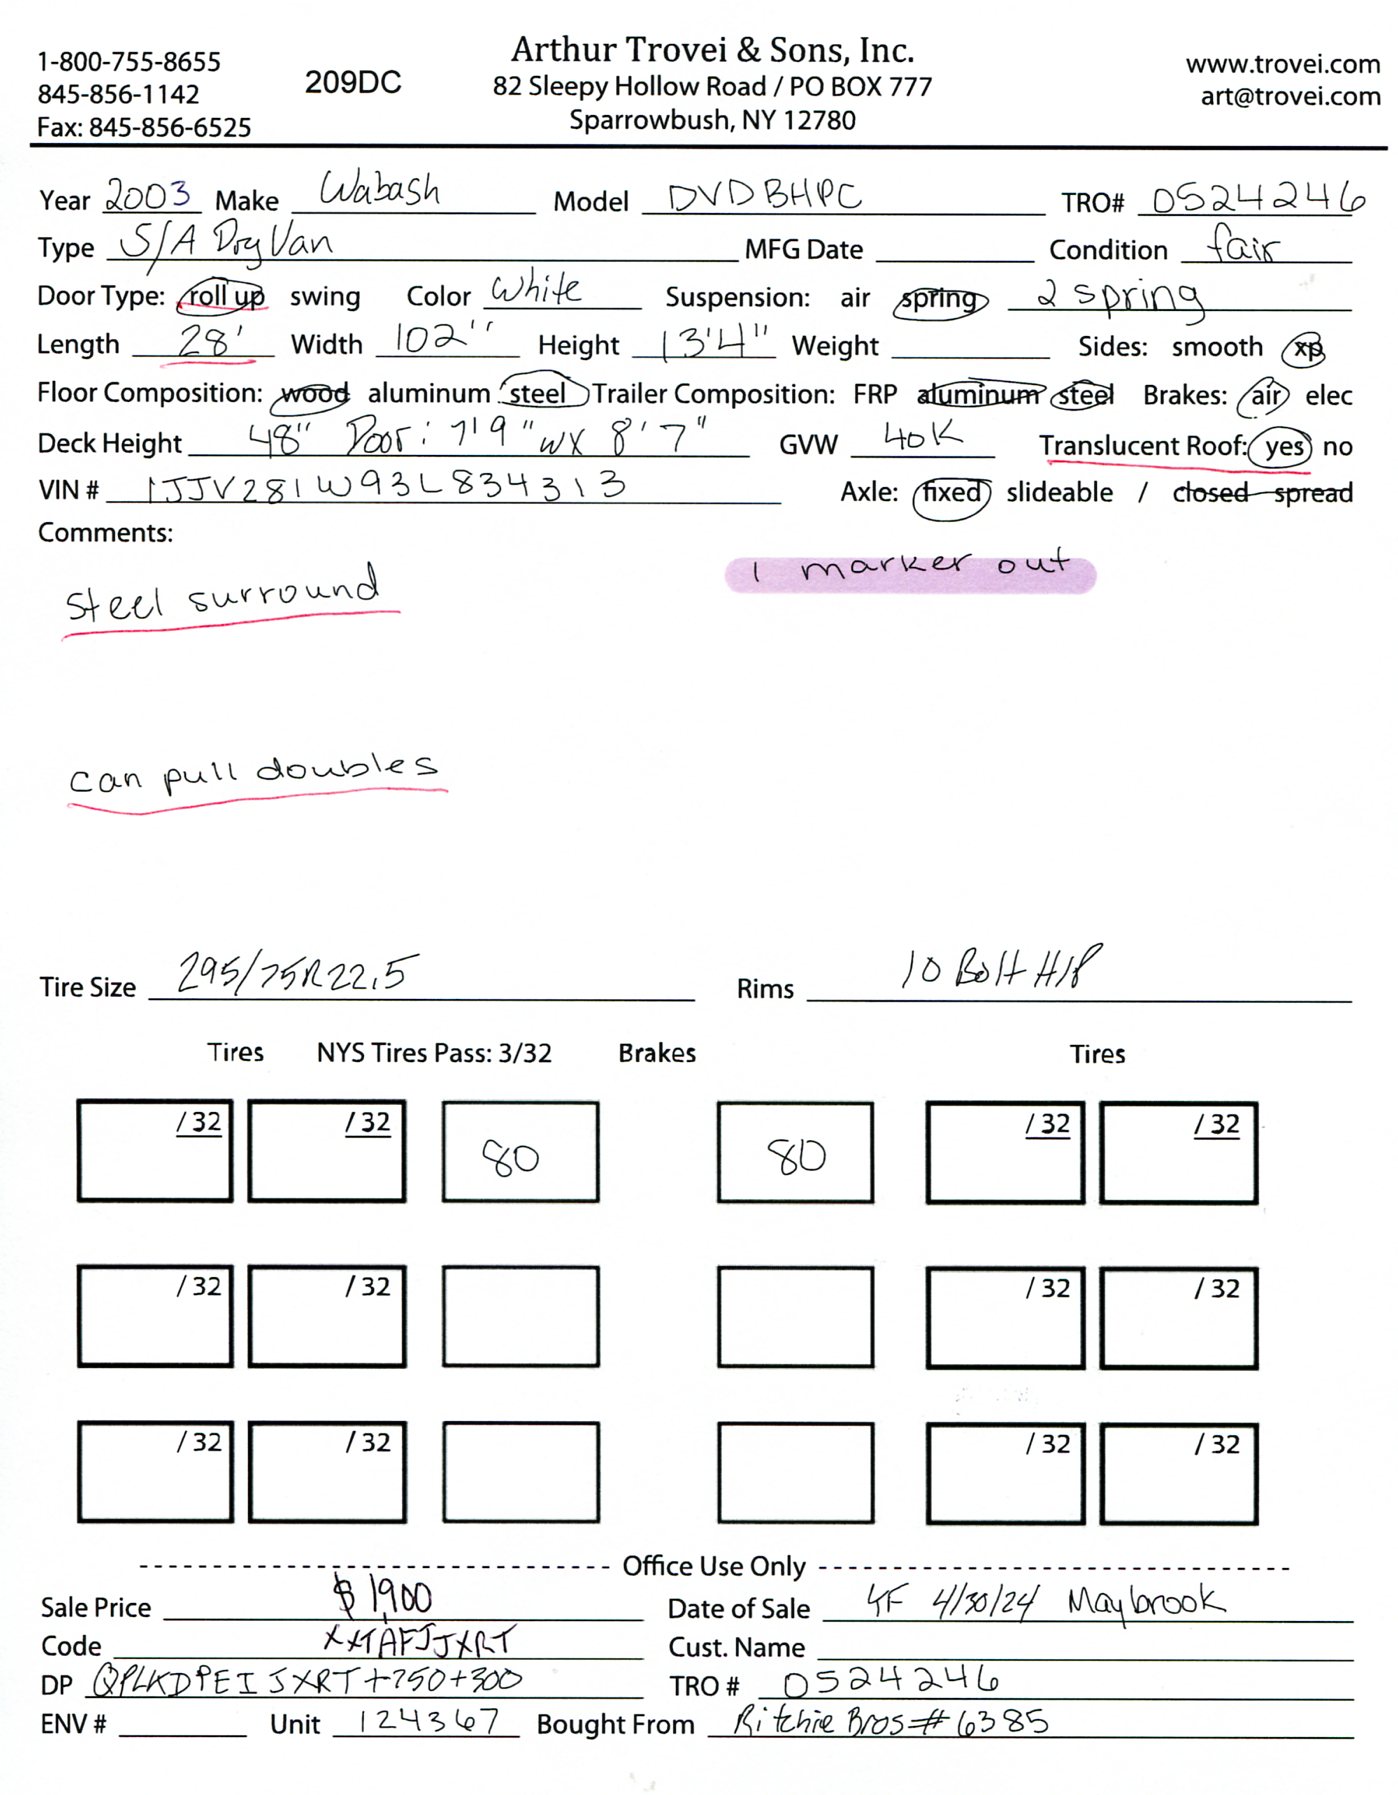 1-800-755-8655
845-856-1142
Fax: 845-856-6525
209DC
Arthur Trovei & Sons, Inc.
82 Sleepy Hollow Road / PO BOX 777
Sparrowbush, NY 12780
www.trovei.com
art@trovei.com
Year 2003 Make Wabash Model DVDBHPC TRO# 0524246
Type S/A Dry Van MFG Date Condition fair
Door Type: roll up swing Color White Suspension: air spring 2 spring
Length 28' Width 102'' Height 13'4" Weight Sides: smooth xp
Floor Composition: wood aluminum steel Trailer Composition: FRP aluminum steel Brakes: air elec
Deck Height 48" Door: 7'9" w x 8'7" GVW 40K Translucent Roof: yes no
VIN # 1JJV281W93L834313 Axle: fixed slideable / closed spread
Comments:
1 marker out
steel surround
can pull doubles
Tire Size 295/75R22.5 Rims 10 Bolt H/P
Tires NYS Tires Pass: 3/32 Brakes Tires
/32 /32 80 80 /32 /32
/32 /32 /32 /32
/32 /32 /32 /32
Office Use Only
Sale Price $1,900 Date of Sale 4/30/24 Maybrook
Code XXTAFJJXRT Cust. Name
DP QPLKDPEIJXRT+750+300 TRO # 0524246
ENV # Unit 124367 Bought From Ritchie Bros # 6385